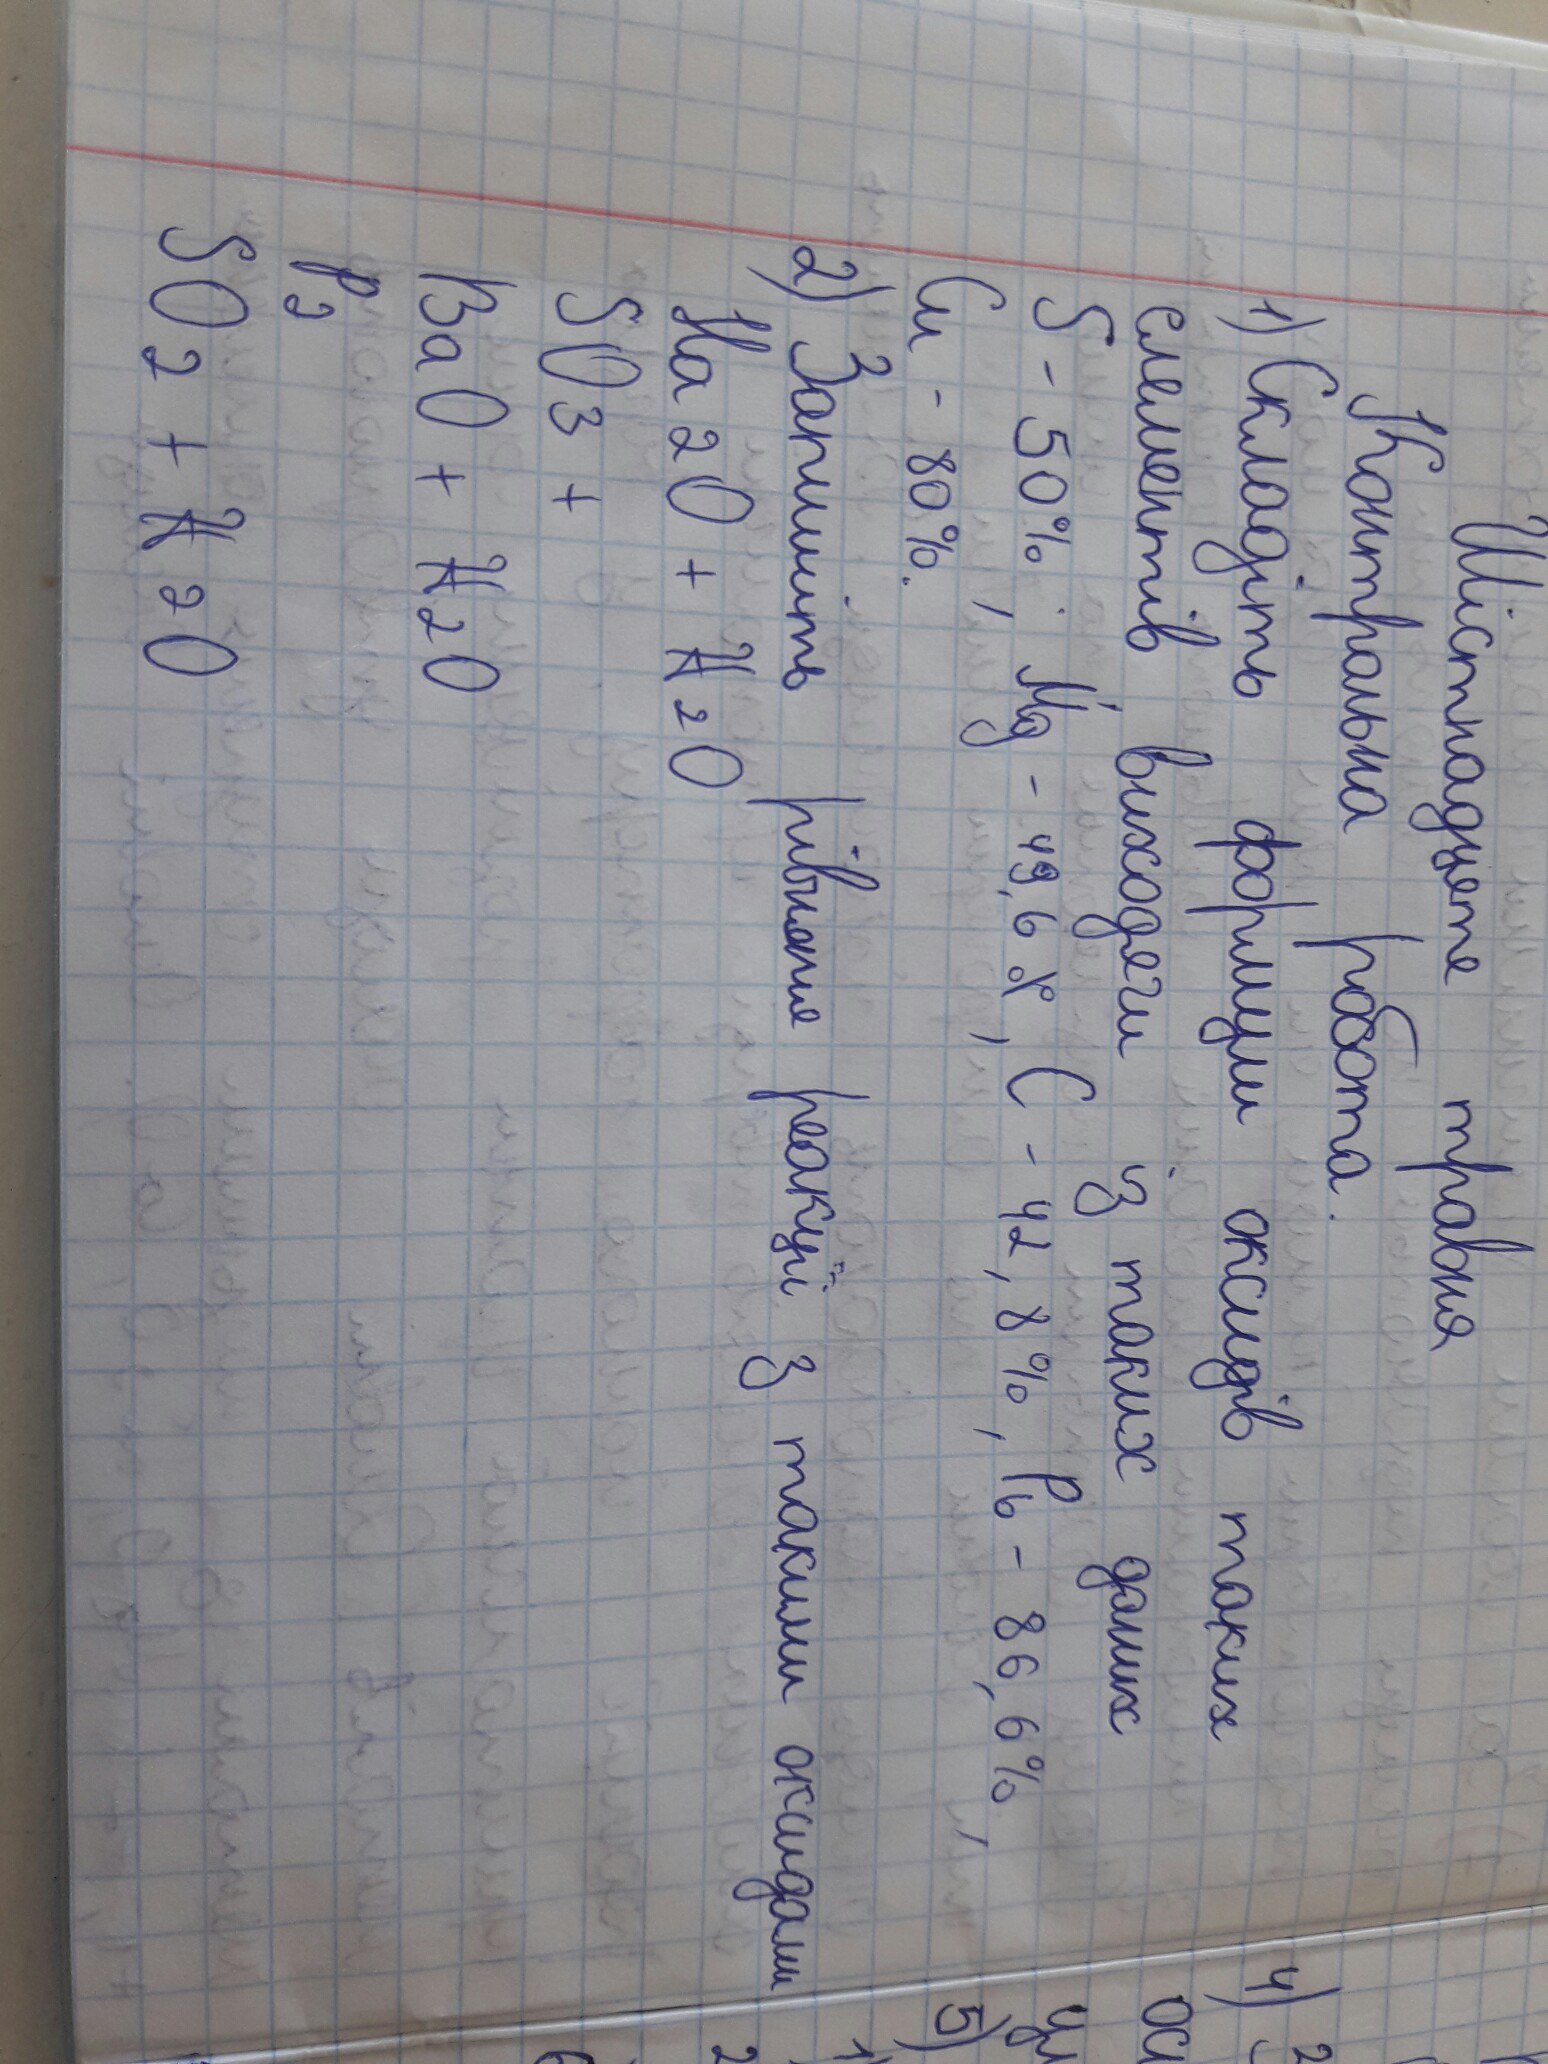 Шістнадцяте травня
Контрольна робота.
1) Складіть формули оксидів таких
елементів, виходячи із таких даних
S - 50%, Mg - 49,6%, C - 42,8%, Pb - 86,6%,
Cu - 80%.
2) Запишіть рівняння реакції з такими оксидами
Na2O + H2O
SO3 +
BaO + H2O
P2
SO2 + H2O
4) 2
ос
5)
1)
2